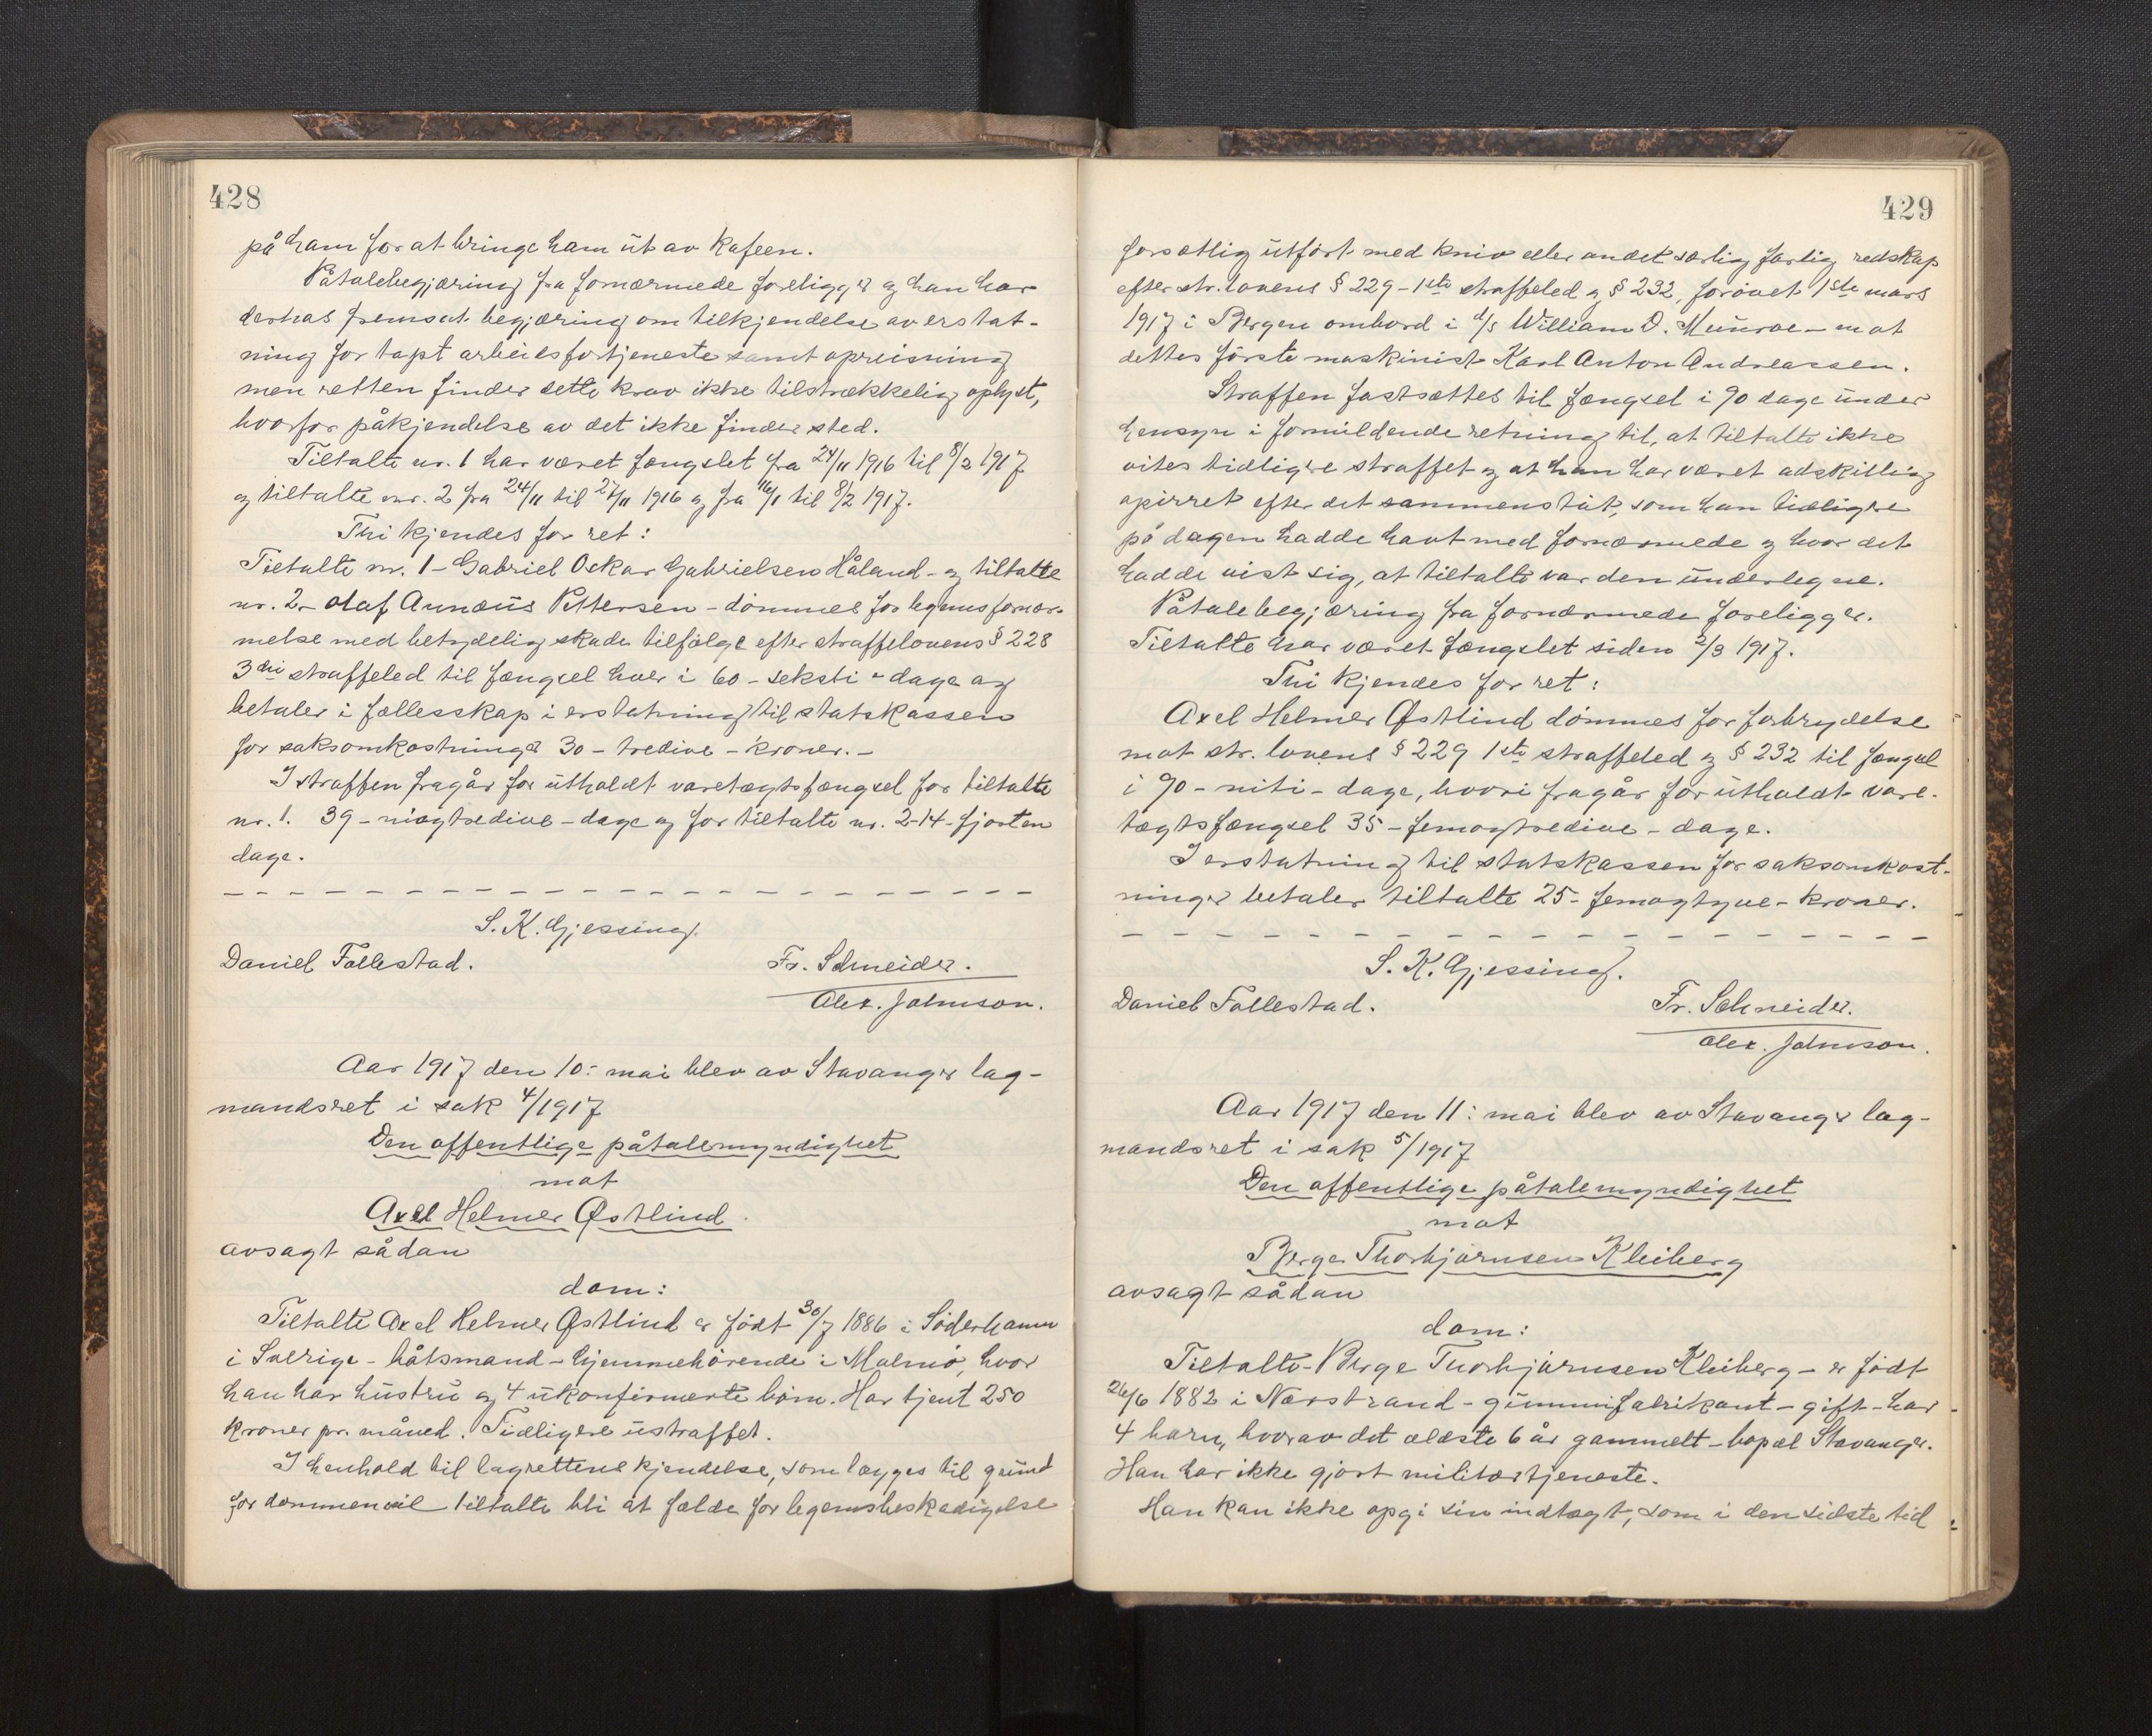 428
på ham for at bringe ham ut av kafeen.
Påtalebegjæring fra fornærmede foreligger og han har
derhos fremsat begjæring om tilkjendelse av erstat-
ning for tapt arbeidsfortjeneste samt opreisning
men retten finder dette krav ikke tilstrækkelig oplyst,
hvorfor påkjendelse av det ikke finder sted.
Tiltalte nr. 1 har været fængslet fra 24/11 1916 til 8/2 1917
og tiltalte nr. 2 fra 24/11 til 27/11 1916 og fra 16/1 til 8/2 1917.
Thi kjendes for ret:
Tiltalte nr. 1 - Gabriel Oskar Gabrielsen Håland - og tiltalte
nr. 2 - Olaf Annæus Pettersen - dømmes for legemsfornær-
melse med betydelig skade tilfølge efter straffelovens § 228
3die straffeled til fængsel hver i 60 - seksti - dage og
betaler i fællesskap i erstatning til statskassen
for saksomkostninger 30 - tredive - kroner. -
I straffen fragår for utholdt varetægtsfængsel for tiltalte
nr. 1. 39 - niogtredive - dage og for tiltalte nr. 2 - 14 - fjorten
dage.
S. K. Gjessing.
Daniel Follestad. Fr. Schneider.
Alex. Johnson.
Aar 1917 den 10: mai blev av Stavanger lag-
mandsret i sak 4/1917
Den offentlige påtalemyndighet
mot
Axel Helmer Østlind.
avsagt sådan
dom:
Tiltalte Axel Helmer Østlind er født 30/7 1886 i Søderhamn
i Sverige - båtsmand - hjemmehørende i Malmø, hvor
han har hustru og 4 ukonfirmerte børn. Har tjent 250
kroner pr. måned. Tidligere ustraffet.
I henhold til lagrettens kjendelse, som lægges til grund
for dommen vil tiltalte bli at fælde for legemsbeskadigelse
429
forsætlig utført med kniv eller andet særlig farlig redskap
efter str. lovens § 229 - 1ste straffeled og § 232, forøvet 1ste mars
1917 i Bergen ombord i d/s William D. Munroe - mot
dettes første maskinist Karl Anton Andreassen.
Straffen fastsættes til fængsel i 90 dage under
hensyn i formildende retning til, at tiltalte ikke
vites tidligere straffet og at han har været adskillig
opirret efter det sammenstøt, som han tidligere
på dagen hadde havt med fornærmede og hvor det
hadde vist sig, at tiltalte var den underlegne.
Påtalebegjæring fra fornærmede foreligger.
Tiltalte har været fængslet siden 2/3 1917.
Thi kjendes for ret:
Axel Helmer Østlind dømmes for forbrydelse
mot str. lovens § 229 1ste straffeled og § 232 til fængsel
i 90 - niti - dage, hvori fragår for utholdt vare-
tægtsfængsel 35 - femogtredive - dage.
I erstatning til statskassen for saksomkost-
ninger betaler tiltalte 25 - femogtyve - kroner.
S. K. Gjessing.
Daniel Follestad. Fr. Schneider.
Alex. Johnson.
Aar 1917 den 11: mai blev av Stavanger lag-
mandsret i sak 5/1917
Den offentlige påtalemyndighet
mot
Berge Thorbjørnsen Kleiberg
avsagt sådan
dom:
Tiltalte - Berge Thorbjørnsen Kleiberg - er født
26/6 1882 i Nerstrand - gummifabrikant - gift - har
4 barn, hvorav det ældste 6 år gammelt - bopæl Stavanger.
Han har ikke gjort militærtjeneste.
Han kan ikke opgi sin indtægt, som i den sidste tid